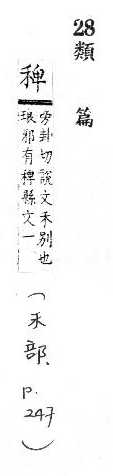 28類篇
稗
旁卦切說文禾別也
琅邪有稗縣文一
(禾部、p.247)